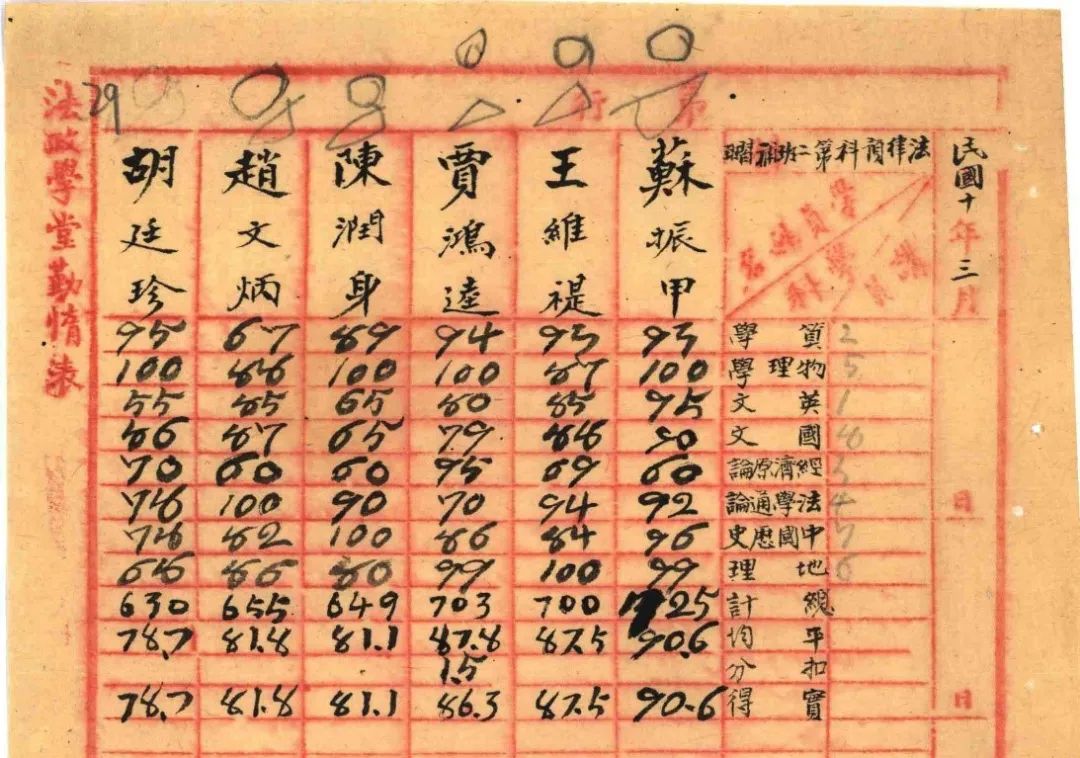 民國十年三月 日
法律預科第二班補習
學員姓名
學科
蘇振甲 王維禔 賈鴻逵 陳潤身 趙文炳 胡廷珍
2 算學 93 93 94 89 67 95
5 物理學 100 87 100 100 88 100
1 英文 95 85 80 65 85 55
8 國文 90 88 79 65 87 86
3 經濟原論 60 69 95 60 60 70
4 法學通論 92 94 70 90 100 78
7 中國歷史 96 84 86 100 82 78
6 地理 99 100 99 80 86 68
總計 725 700 703 649 655 630
平均 90.6 87.5 87.8 81.1 81.8 78.7
扣分 1.5
實得 90.6 87.5 86.3 81.1 81.8 78.7
日
29
法政學堂勤惰表